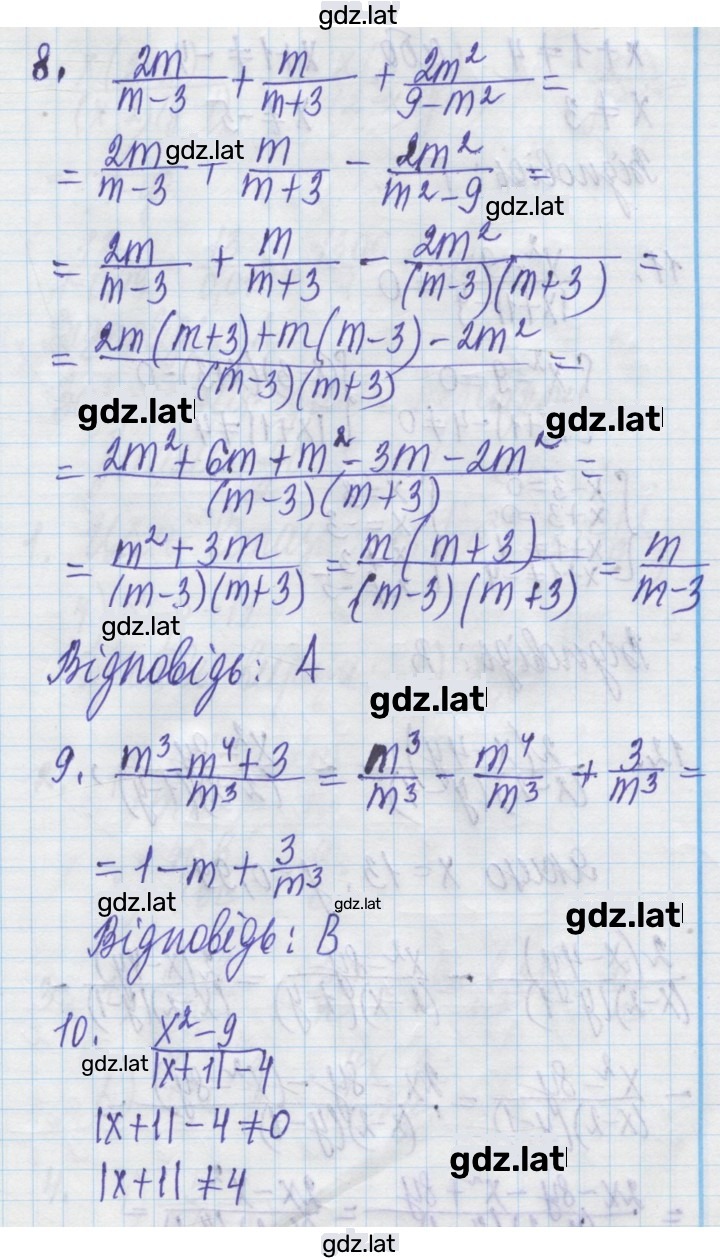 gdz.lat
8. 2m/(m-3) + m/(m+3) + 2m²/(9-m²) =
= 2m/(m-3) + m/(m+3) - 2m²/(m²-9) =
gdz.lat
gdz.lat
= 2m/(m-3) + m/(m+3) - 2m²/((m-3)(m+3)) =
= (2m(m+3)+m(m-3)-2m²)/((m-3)(m+3)) =
gdz.lat
gdz.lat
= (2m²+6m+m²-3m-2m²)/((m-3)(m+3)) =
= (m²+3m)/((m-3)(m+3)) = m(m+3)/((m-3)(m+3)) = m/(m-3)
gdz.lat
Відповідь: А
gdz.lat
9. (m³-m⁴+3)/m³ = m³/m³ - m⁴/m³ + 3/m³ =
= 1-m+3/m³
gdz.lat
gdz.lat
gdz.lat
Відповідь: В
10. (x²-9)/(|x+1|-4)
gdz.lat
|x+1|-4≠0
gdz.lat
|x+1|≠4
gdz.lat